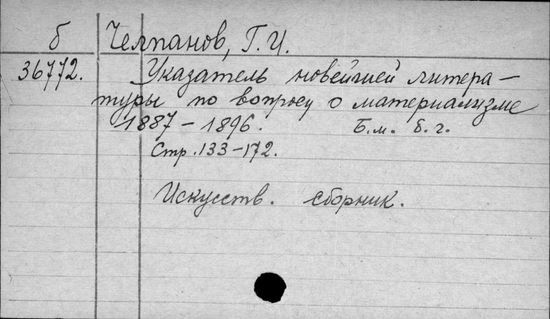 б Челпанов, Г. И.
36772. Указатель новейшей литера-
туры по вопросу о материализме
1887 – 1896. Б. м. б. г.
Стр. 133-172.
Искусств. сборник.